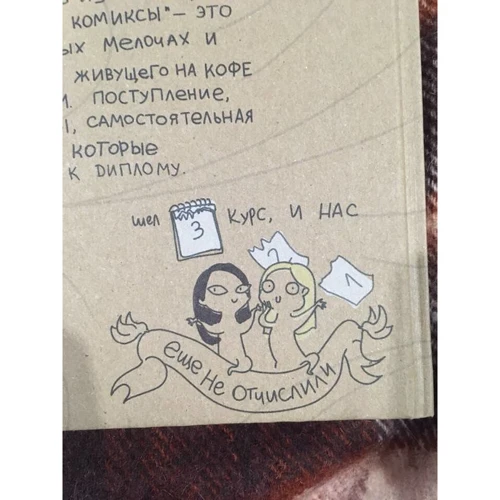 КОМИКСЫ"– ЭТО
ЫХ МЕЛОЧАХ И
ЖИВУЩЕГО НА КОФЕ
И. ПОСТУПЛЕНИЕ,
, САМОСТОЯТЕЛЬНАЯ
КОТОРЫЕ
К ДИПЛОМУ.
шел 3 КУРС, И НАС
2
1
ЕЩЕ НЕ ОТЧИСЛИЛИ